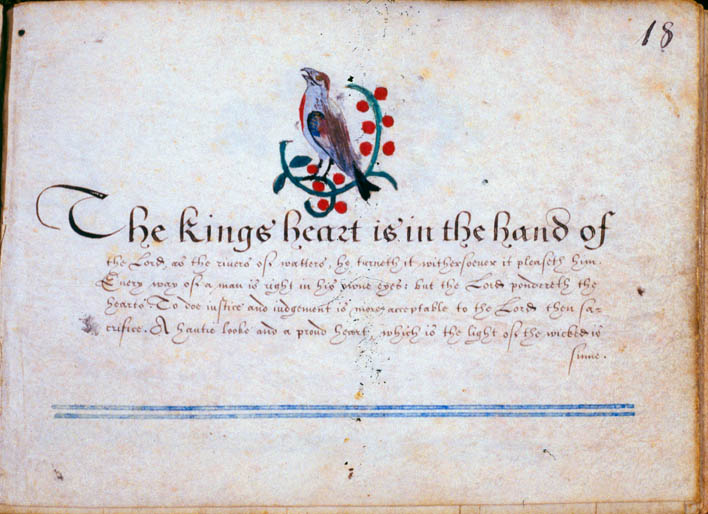 18
The kings heart is in the hand of
the Lord, as the rivers of watters, he turneth it withersoever it pleaseth him.
Every way of a man is right in his owne eyes: but the Lord pondereth the
hearts. To doe iustice and iudgement is more acceptable to the Lord then sa-
crifice. A hautie looke and a proud heart, which is the light of the wicked is
sinne.